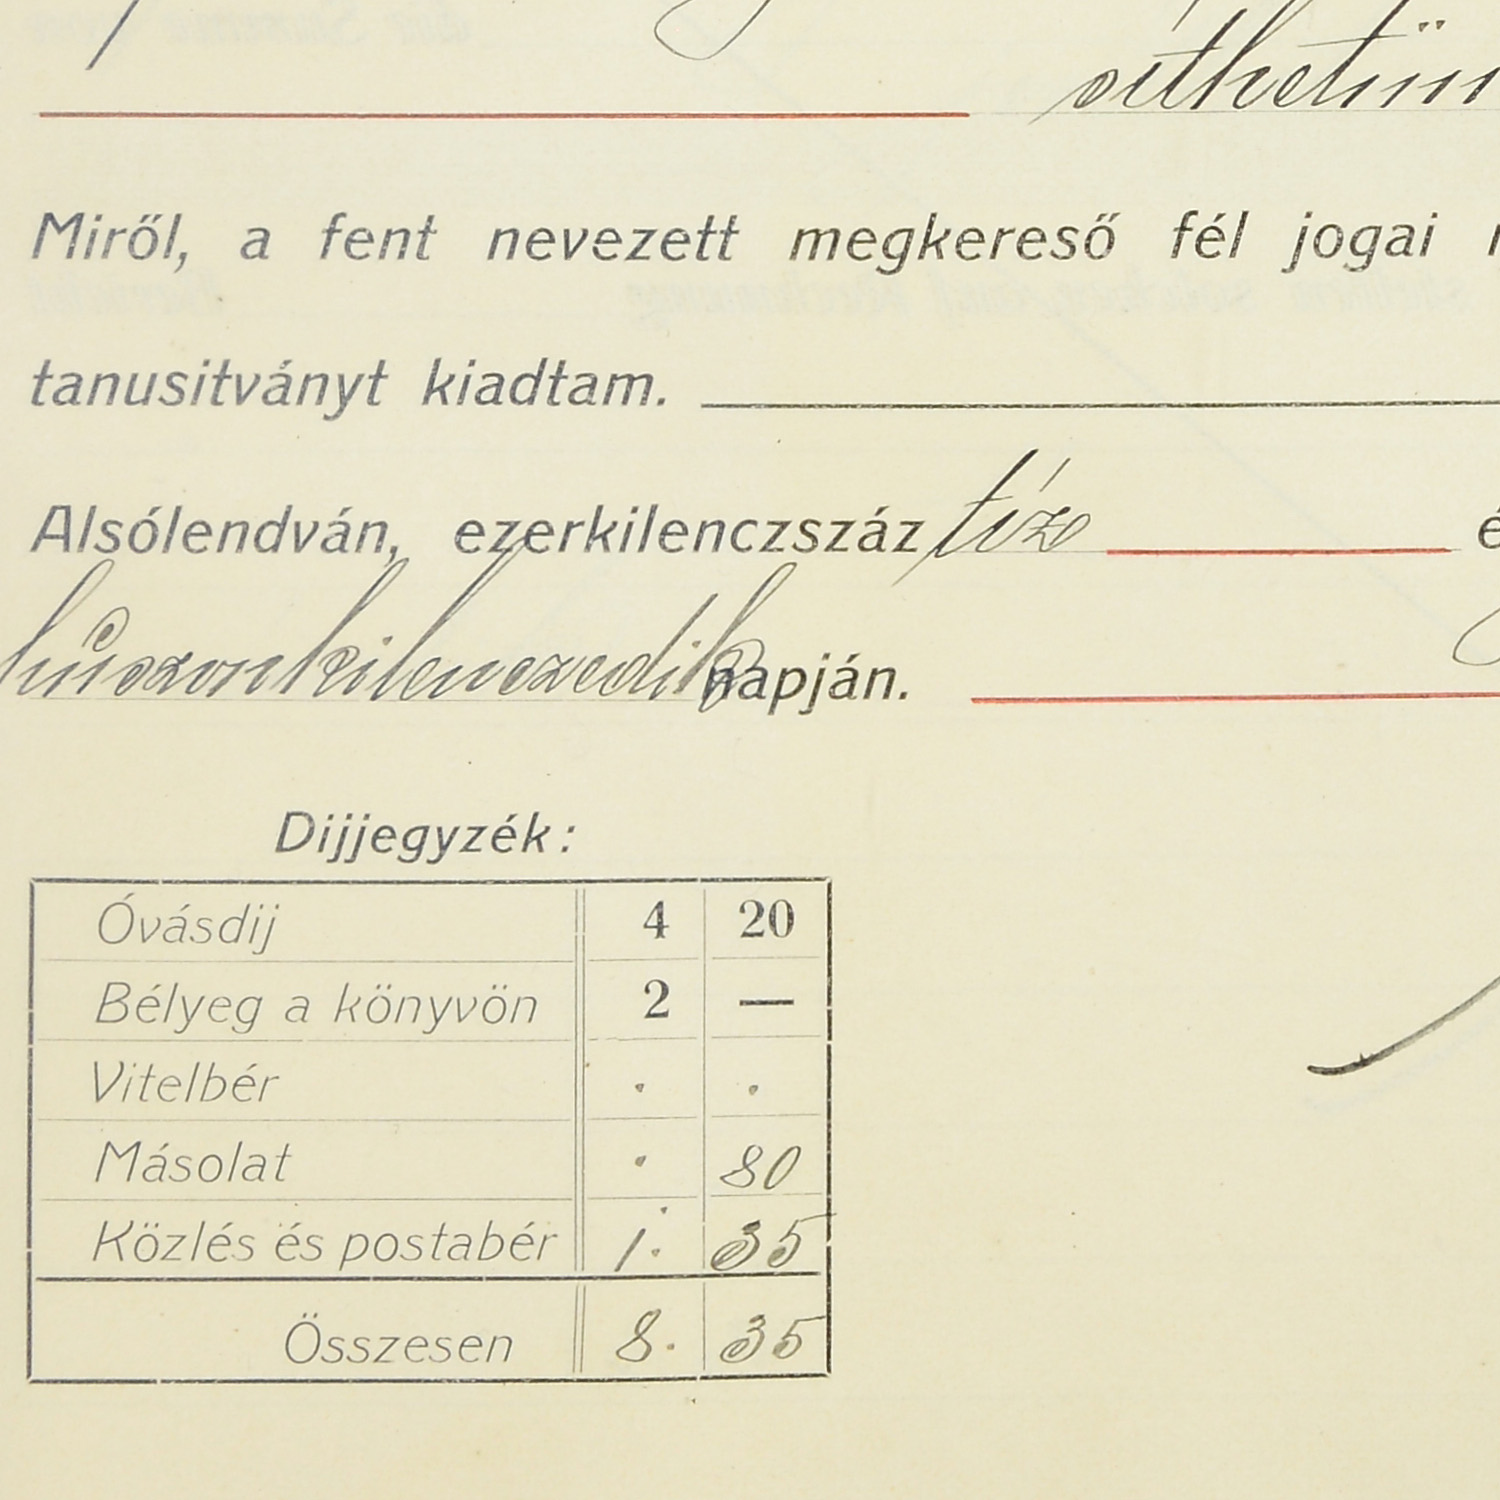 Miről, a fent nevezett megkereső fél jogai
tanusitványt kiadtam.
Alsólendván, ezerkilenczszáz tíz
huszonkilenczedik napján.
Dijjegyzék:
Óvásdij 4 20
Bélyeg a könyvön 2 —
Vitelbér . .
Másolat . 80
Közlés és postabér 1. 35
Összesen 8. 35